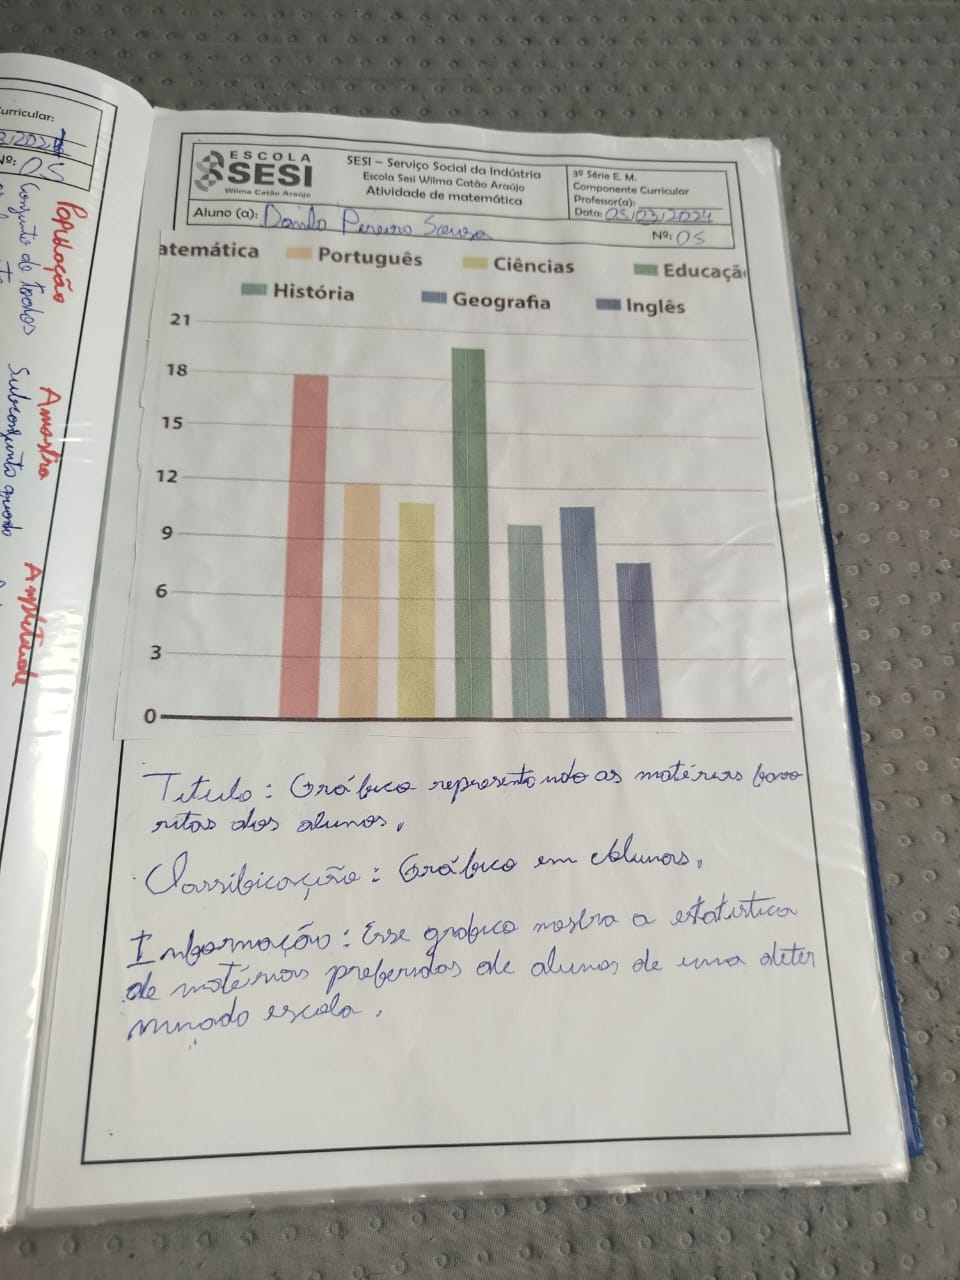 urricular:
Nº: 05
População
Conjunto de todos
Amostra
Subconjunto quando
Amplitude
ESCOLA
SESI
Wilma Catão Araújo
SESI – Serviço Social da Indústria
Escola Sesi Wilma Catão Araújo
Atividade de matemática
3º Série E. M.
Componente Curricular
Professor(a):
Data: 05/03/2024
Aluno (a): Danilo Pereira Sousa
Nº: 05
atemática Português Ciências Educaçã
História Geografia Inglês
21
18
15
12
9
6
3
0
Titulo: Gráfico representando as matérias favo
ritas dos alunos.
Classificação: Gráfico em colunas.
Informação: Esse grafico mostra a estatistica
de matérias preferidas de alunos de uma deter
minado escola.